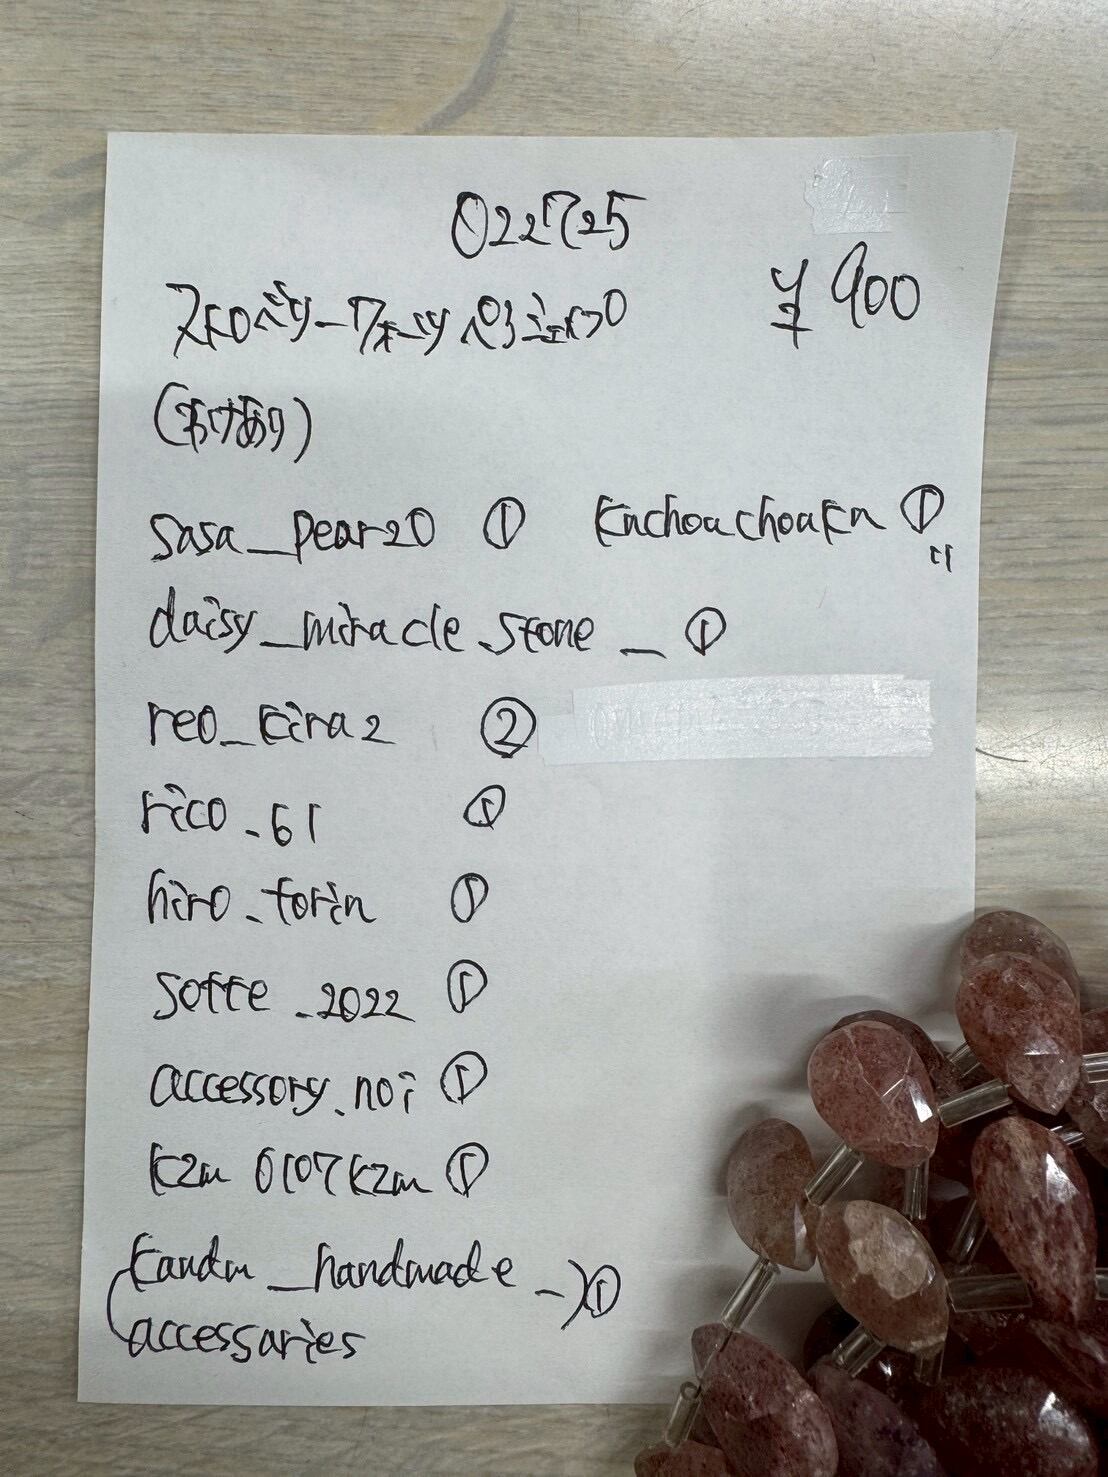 022725
ストロベリークォーツ ペアシェイプ ¥900
(訳けあり)
sasa_pear20 ① knchouchoukn ①
daisy_miracle.stone_ ①
reo_kira2 ②
rico_61 ①
hiro_torin ①
sotte_2022 ①
accessory.noi ①
kzm0107kzm ①
(kandm_handmade_) ①
accessaries